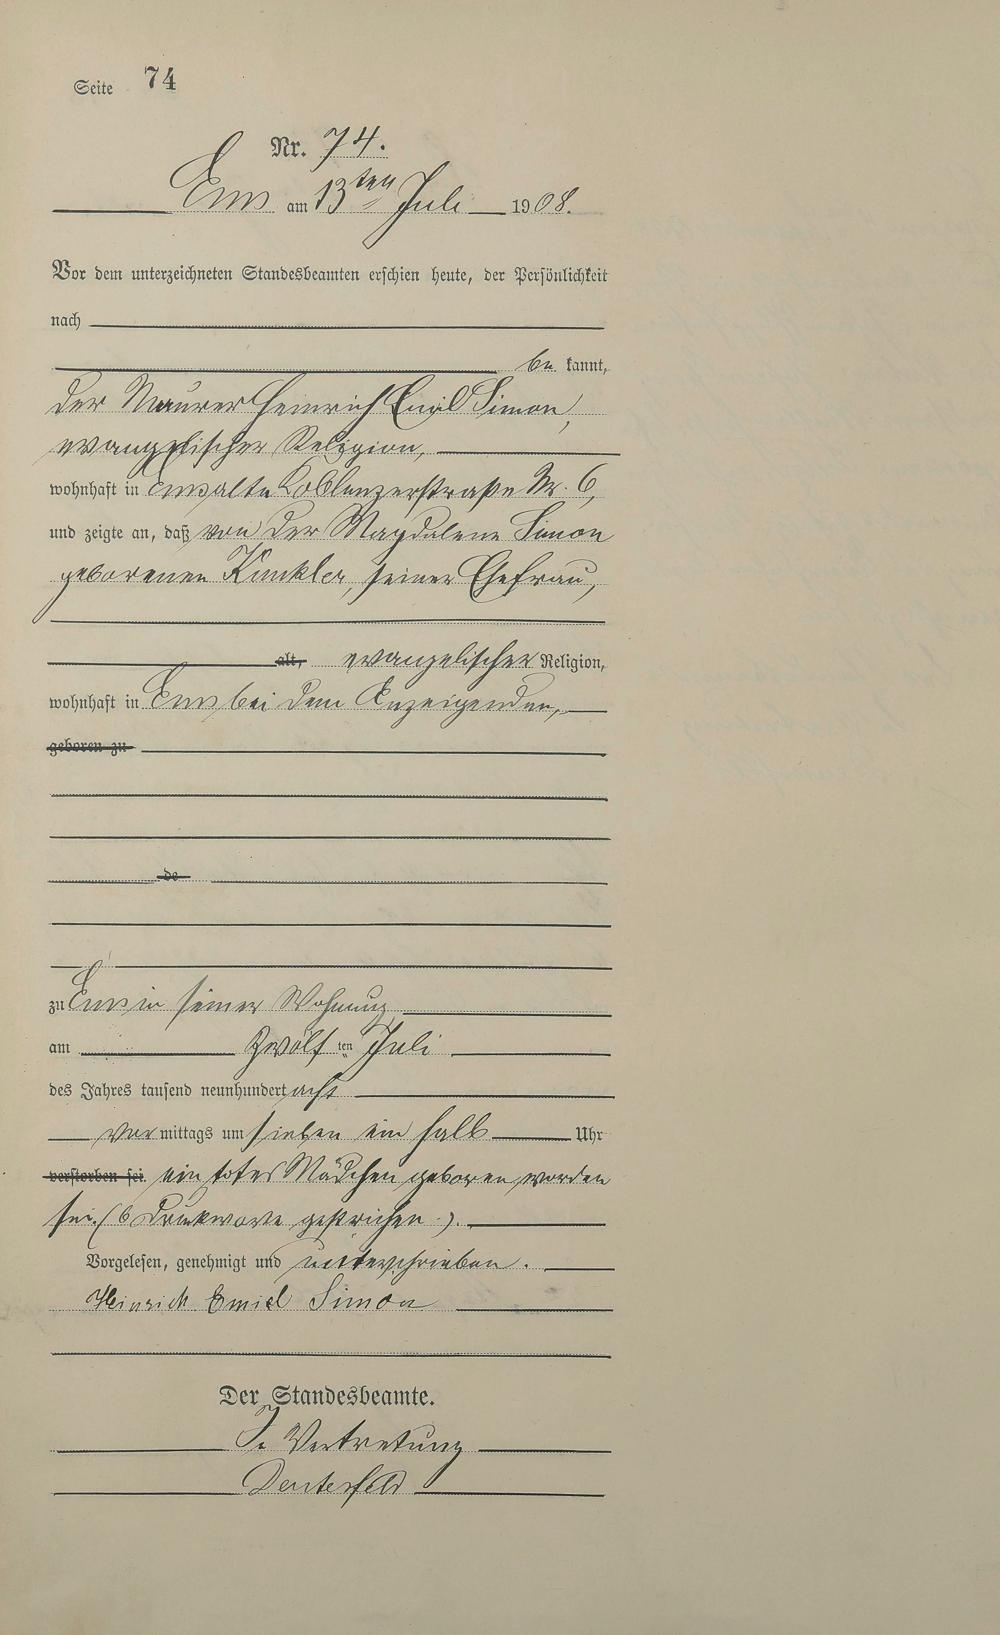 Seite 74
Nr. 74.
Ems am 13ten Juli 1908.
Vor dem unterzeichneten Standesbeamten erschien heute, der Persönlichkeit
nach
be kannt,
der Maurer Heinrich Emil Simon,
evangelischer Religion,
wohnhaft in Ems alte Koblenzerstraße Nr. 6,
und zeigte an, daß von der Magdalene Simon
geborenen Kunkler, seiner Ehefrau,
alt, evangelischer Religion,
wohnhaft in Ems bei dem Anzeigenden,
geboren zu
de
zu Ems in seiner Wohnung
am Zwölf ten Juli
des Jahres tausend neunhundert acht
vor mittags um sieben ein halb Uhr
verstorben sei. ein totes Mädchen geboren worden
sei. (6 Druckworte gestrichen.).
Vorgelesen, genehmigt und unterschrieben.
Heinrich Emiel Simon
Der Standesbeamte.
In Vertretung